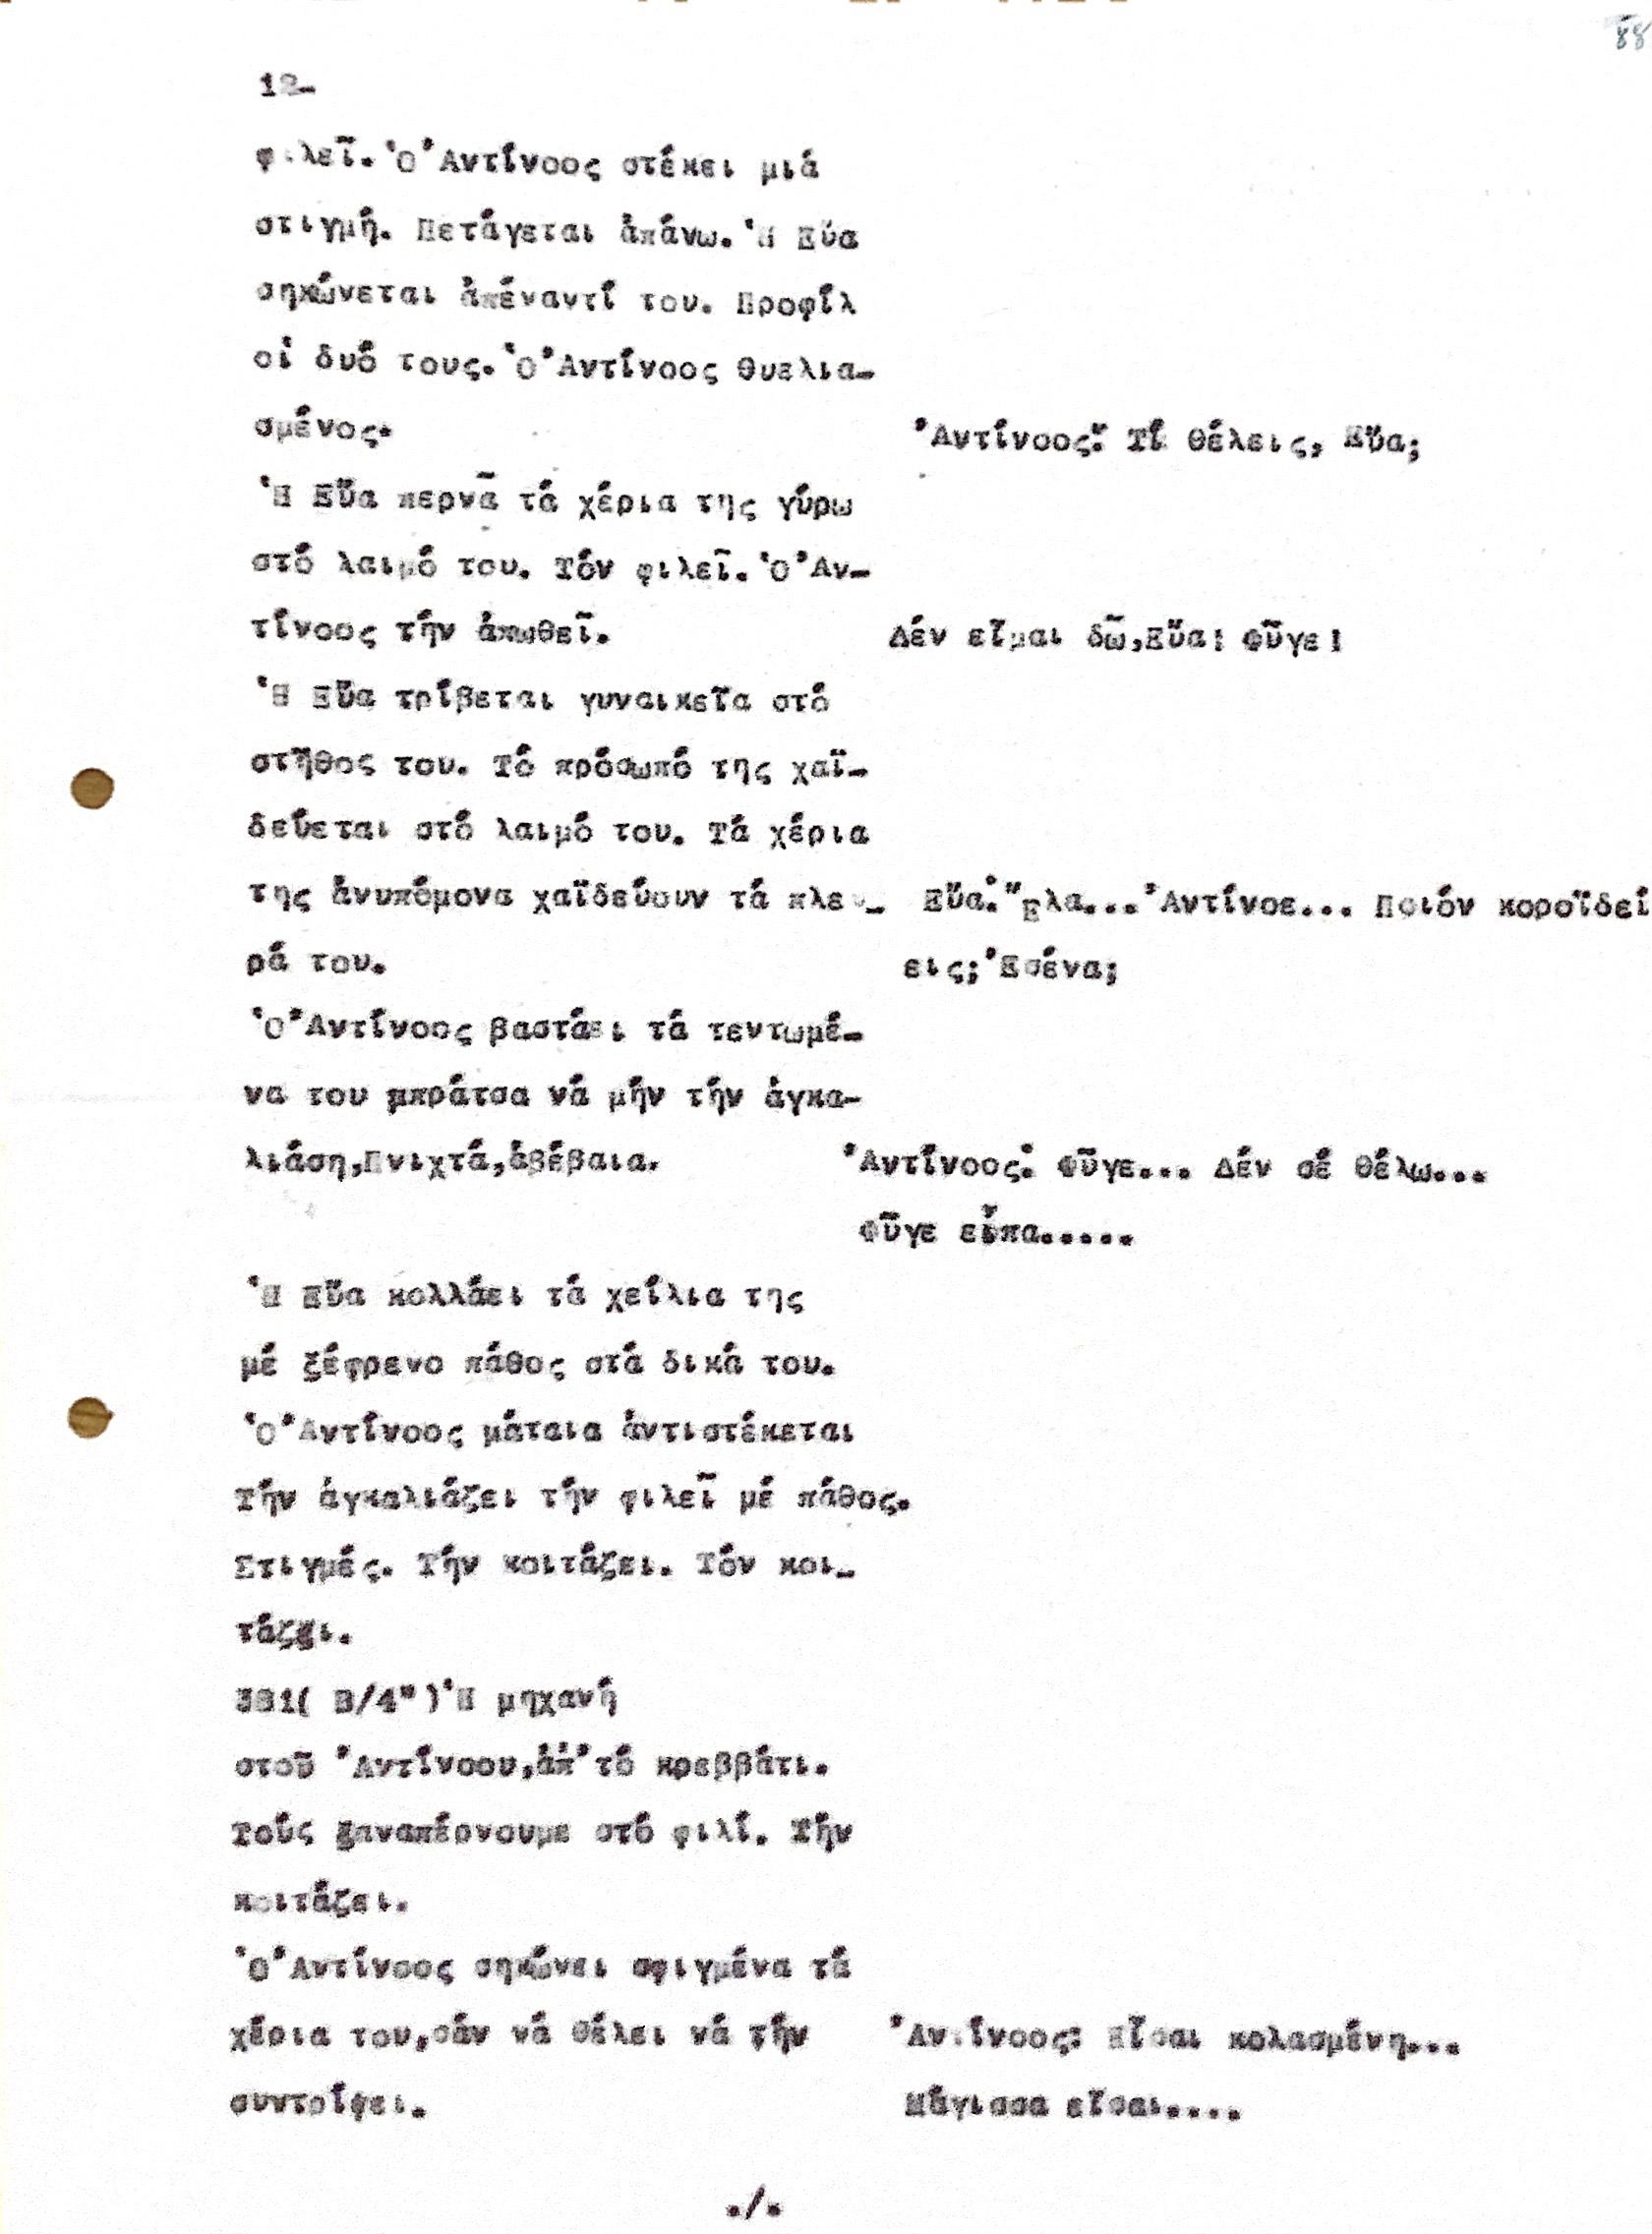 88
12-
φιλεῖ. Ὁ Ἀντίνοος στέκει μιά
στιγμή. Πετάγεται ἀπάνω. Ἡ Εὔα
σηκώνεται ἀπέναντί του. Προφίλ
οἱ δυό τους. Ὁ Ἀντίνοος θυελια-
σμένος. Ἀντίνοος: Τί θέλεις, Εὔα;
Ἡ Εὔα περνᾶ τά χέρια της γύρω
στό λαιμό του. Τόν φιλεῖ. Ὁ Ἀν-
τίνοος τήν ἀπωθεῖ. Δέν εἶμαι δῶ, Εὔα! Φῦγε!
Ἡ Εὔα τρίβεται γυναικεῖα στό
στῆθος του. Τό πρόσωπό της χαϊ-
δεύεται στό λαιμό του. Τά χέρια
της ἀνυπόμονα χαϊδεύουν τά πλευ- Εὔα: Ἔλα... Ἀντίνοε... Ποιόν κοροϊδεύ
ρά του. εις; Ἐσένα;
Ὁ Ἀντίνοος βαστάει τά τεντωμέ-
να του μπράτσα νά μήν τήν ἀγκα-
λιάση, Πνιχτά, ἀβέβαια. Ἀντίνοος: Φῦγε... Δέν σέ θέλω...
Φῦγε εἶπα.....
Ἡ Εὔα κολλάει τά χείλια της
μέ ξέφρενο πάθος στά δικά του.
Ὁ Ἀντίνοος μάταια ἀντιστέκεται
Τήν ἀγκαλιάζει τήν φιλεῖ μέ πάθος.
Στιγμές. Τήν κοιτάζει. Τόν κοι-
τάζει.
381( Β/4") Ἡ μηχανή
στοῦ Ἀντίνοου, ἀπ' τό κρεββάτι.
Τούς ξαναπέρνουμε στό φιλί. Τήν
κοιτάζει.
Ὁ Ἀντίνοος σηκώνει σφιγμένα τά
χέρια του, σάν νά θέλει νά τήν Ἀντίνοος: Εἶσαι κολασμένη...
συντρίψει. Μάγισσα εἶσαι....
./.